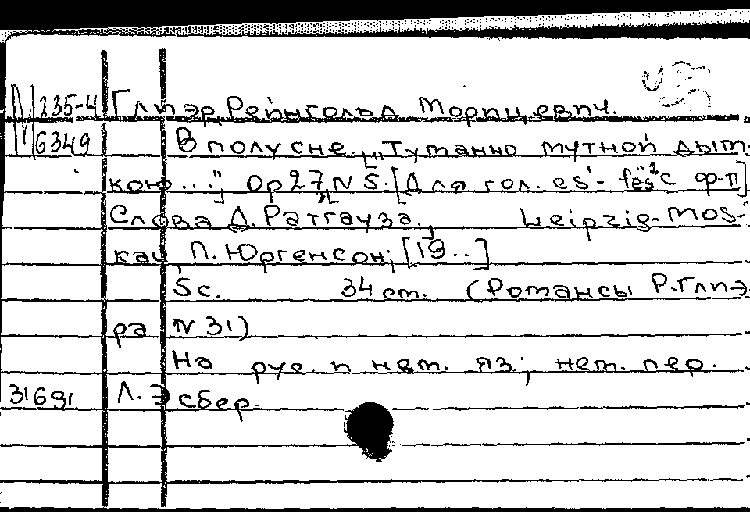 Л 235-4 Глиэр, Рейнгольд Морицевич.
6349 В полусне. „Туманно мутной дым-
кою...", Op 27, N 5. [Для гол. es¹-fes² с ф-п]
Слова Д. Ратгауза. Leipzig-Mos-
кау, П. Юргенсон, [19..]
5с. 34 см. (Романсы Р. Глиэ-
ра N 31)
На рус. и нем. яз; нем. пер.
31691 Л. Эсбер.